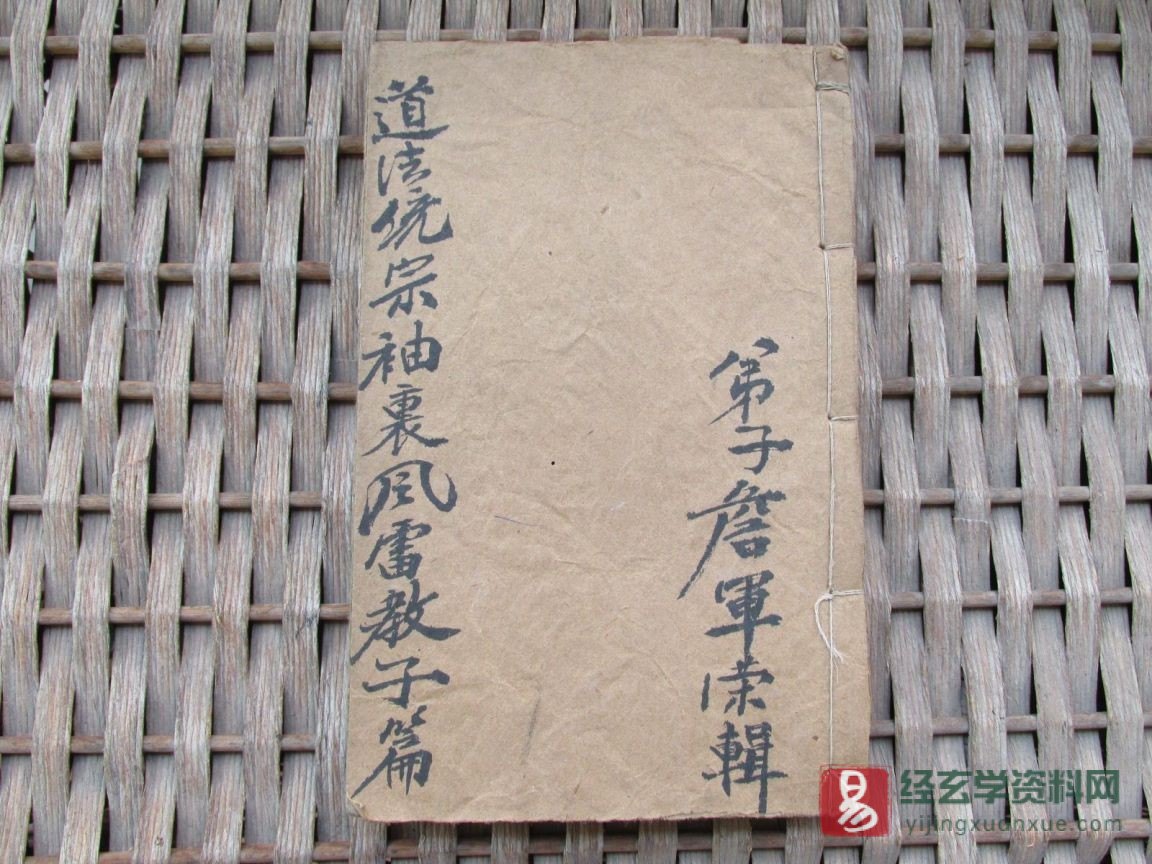 道法統宗袖裏风雷教子篇
弟子詹軍荣輯
易 经玄学资料网
yijingxuanxue.com